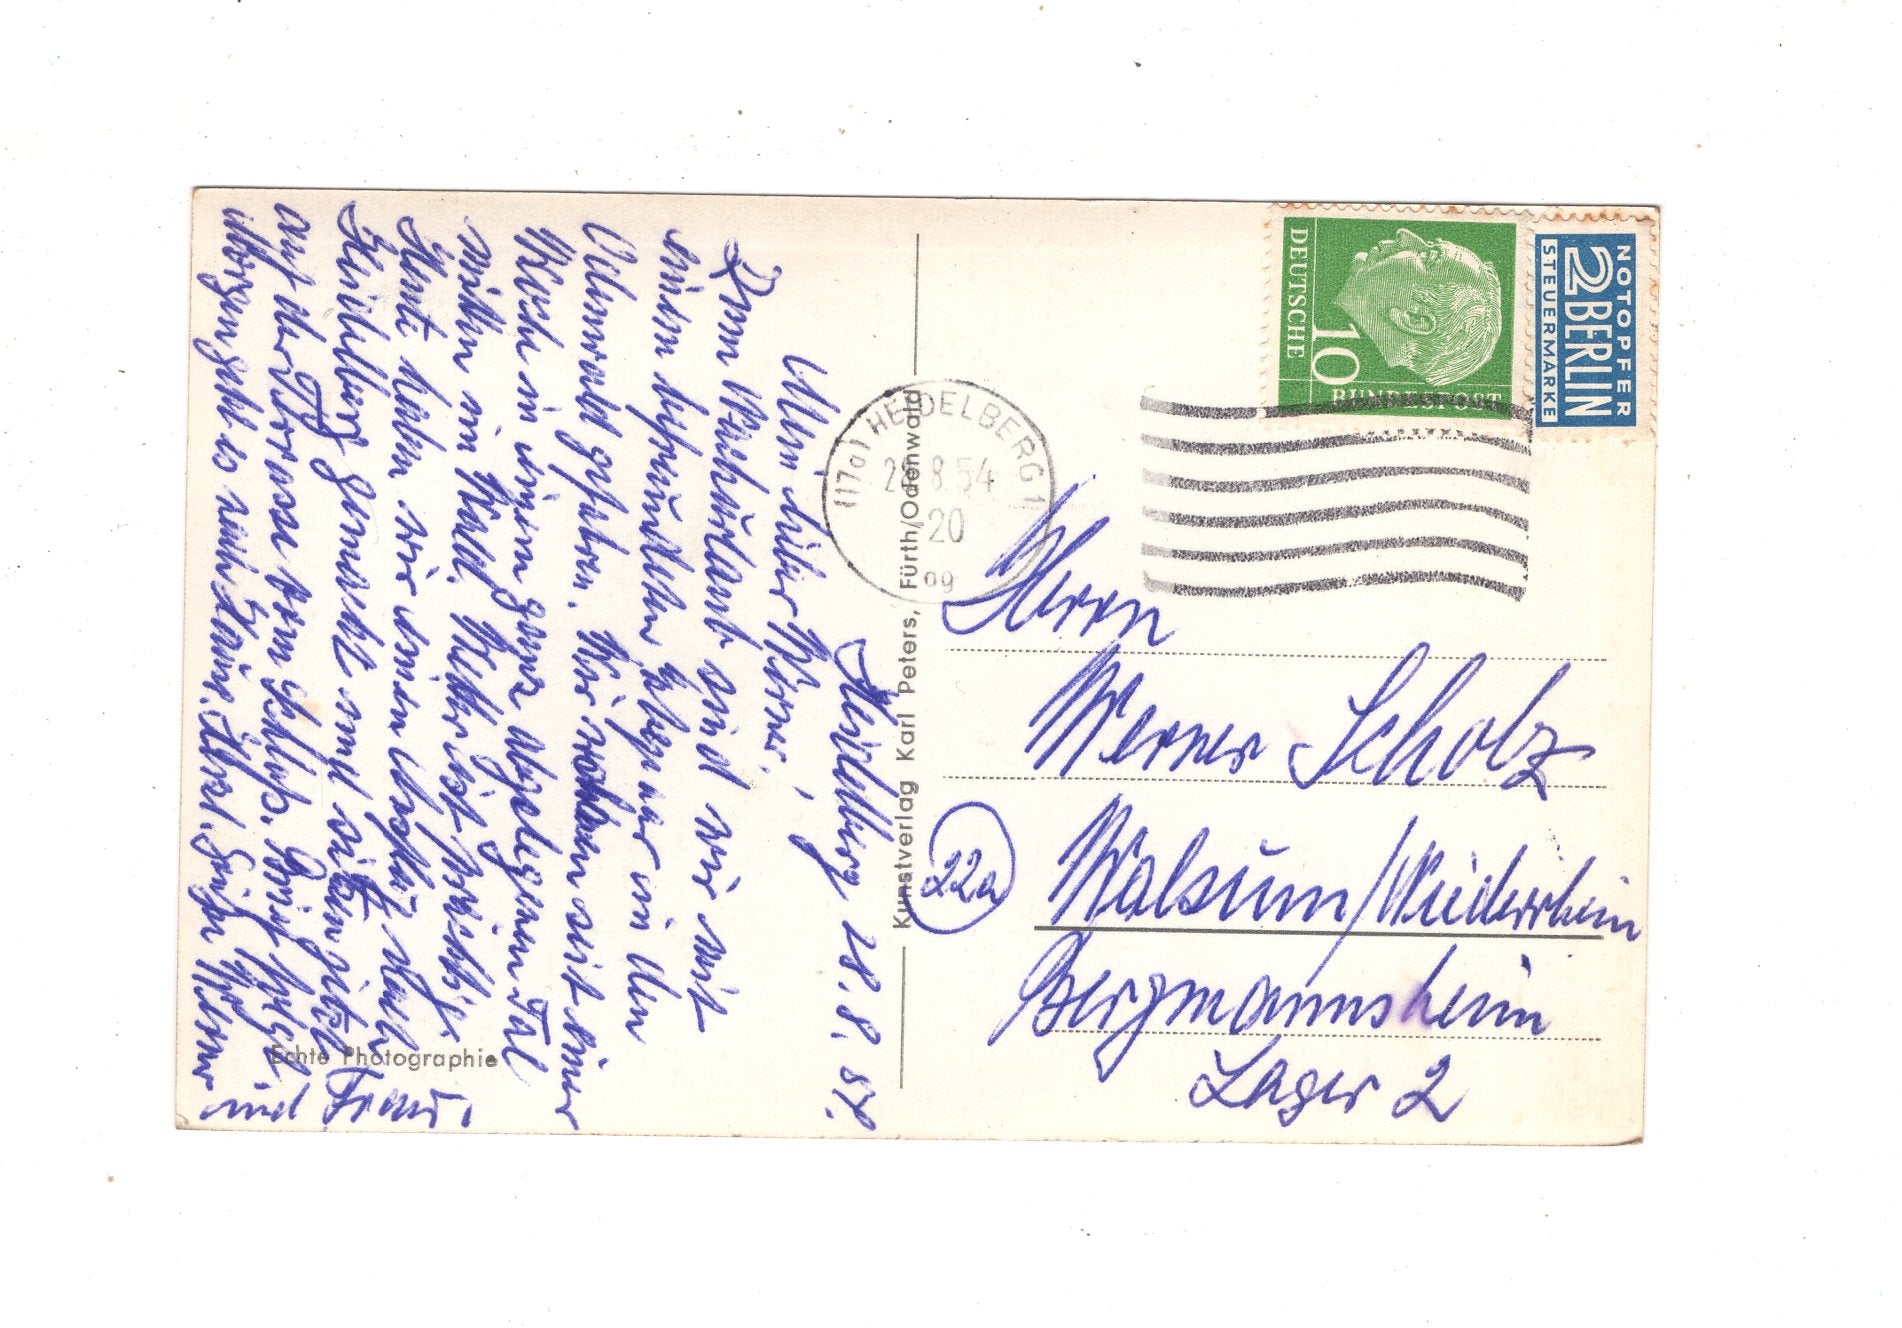 Heidelberg, 28.8.54.
Mein lieber Werner,
Zum Nachurlaub sind wir mit
einem befreundeten Ehepaar in den
Odenwald gefahren. Wir wohnen seit einer
Woche in einem ganz abgelegenen Tal
mitten im Wald. Wetter ist prächtig.
Heute haben wir einen Ausflug nach
Heidelberg gemacht und sitzen jetzt
auf der Terrasse vom Schloß.
Morgen geht es nach Hause. Herzl. Grüße
und Frau.
Echte Photographie
Kunstverlag Karl Peters, Fürth/Odenwald
(17a) HEIDELBERG 1
8.54
20
DEUTSCHE
BUNDESPOST
10
NOTOPFER
2 BERLIN
STEUERMARKE
Herrn
Werner Scholz
22a
Walsum/Niederrhein
Bergmannsheim
Lager 2